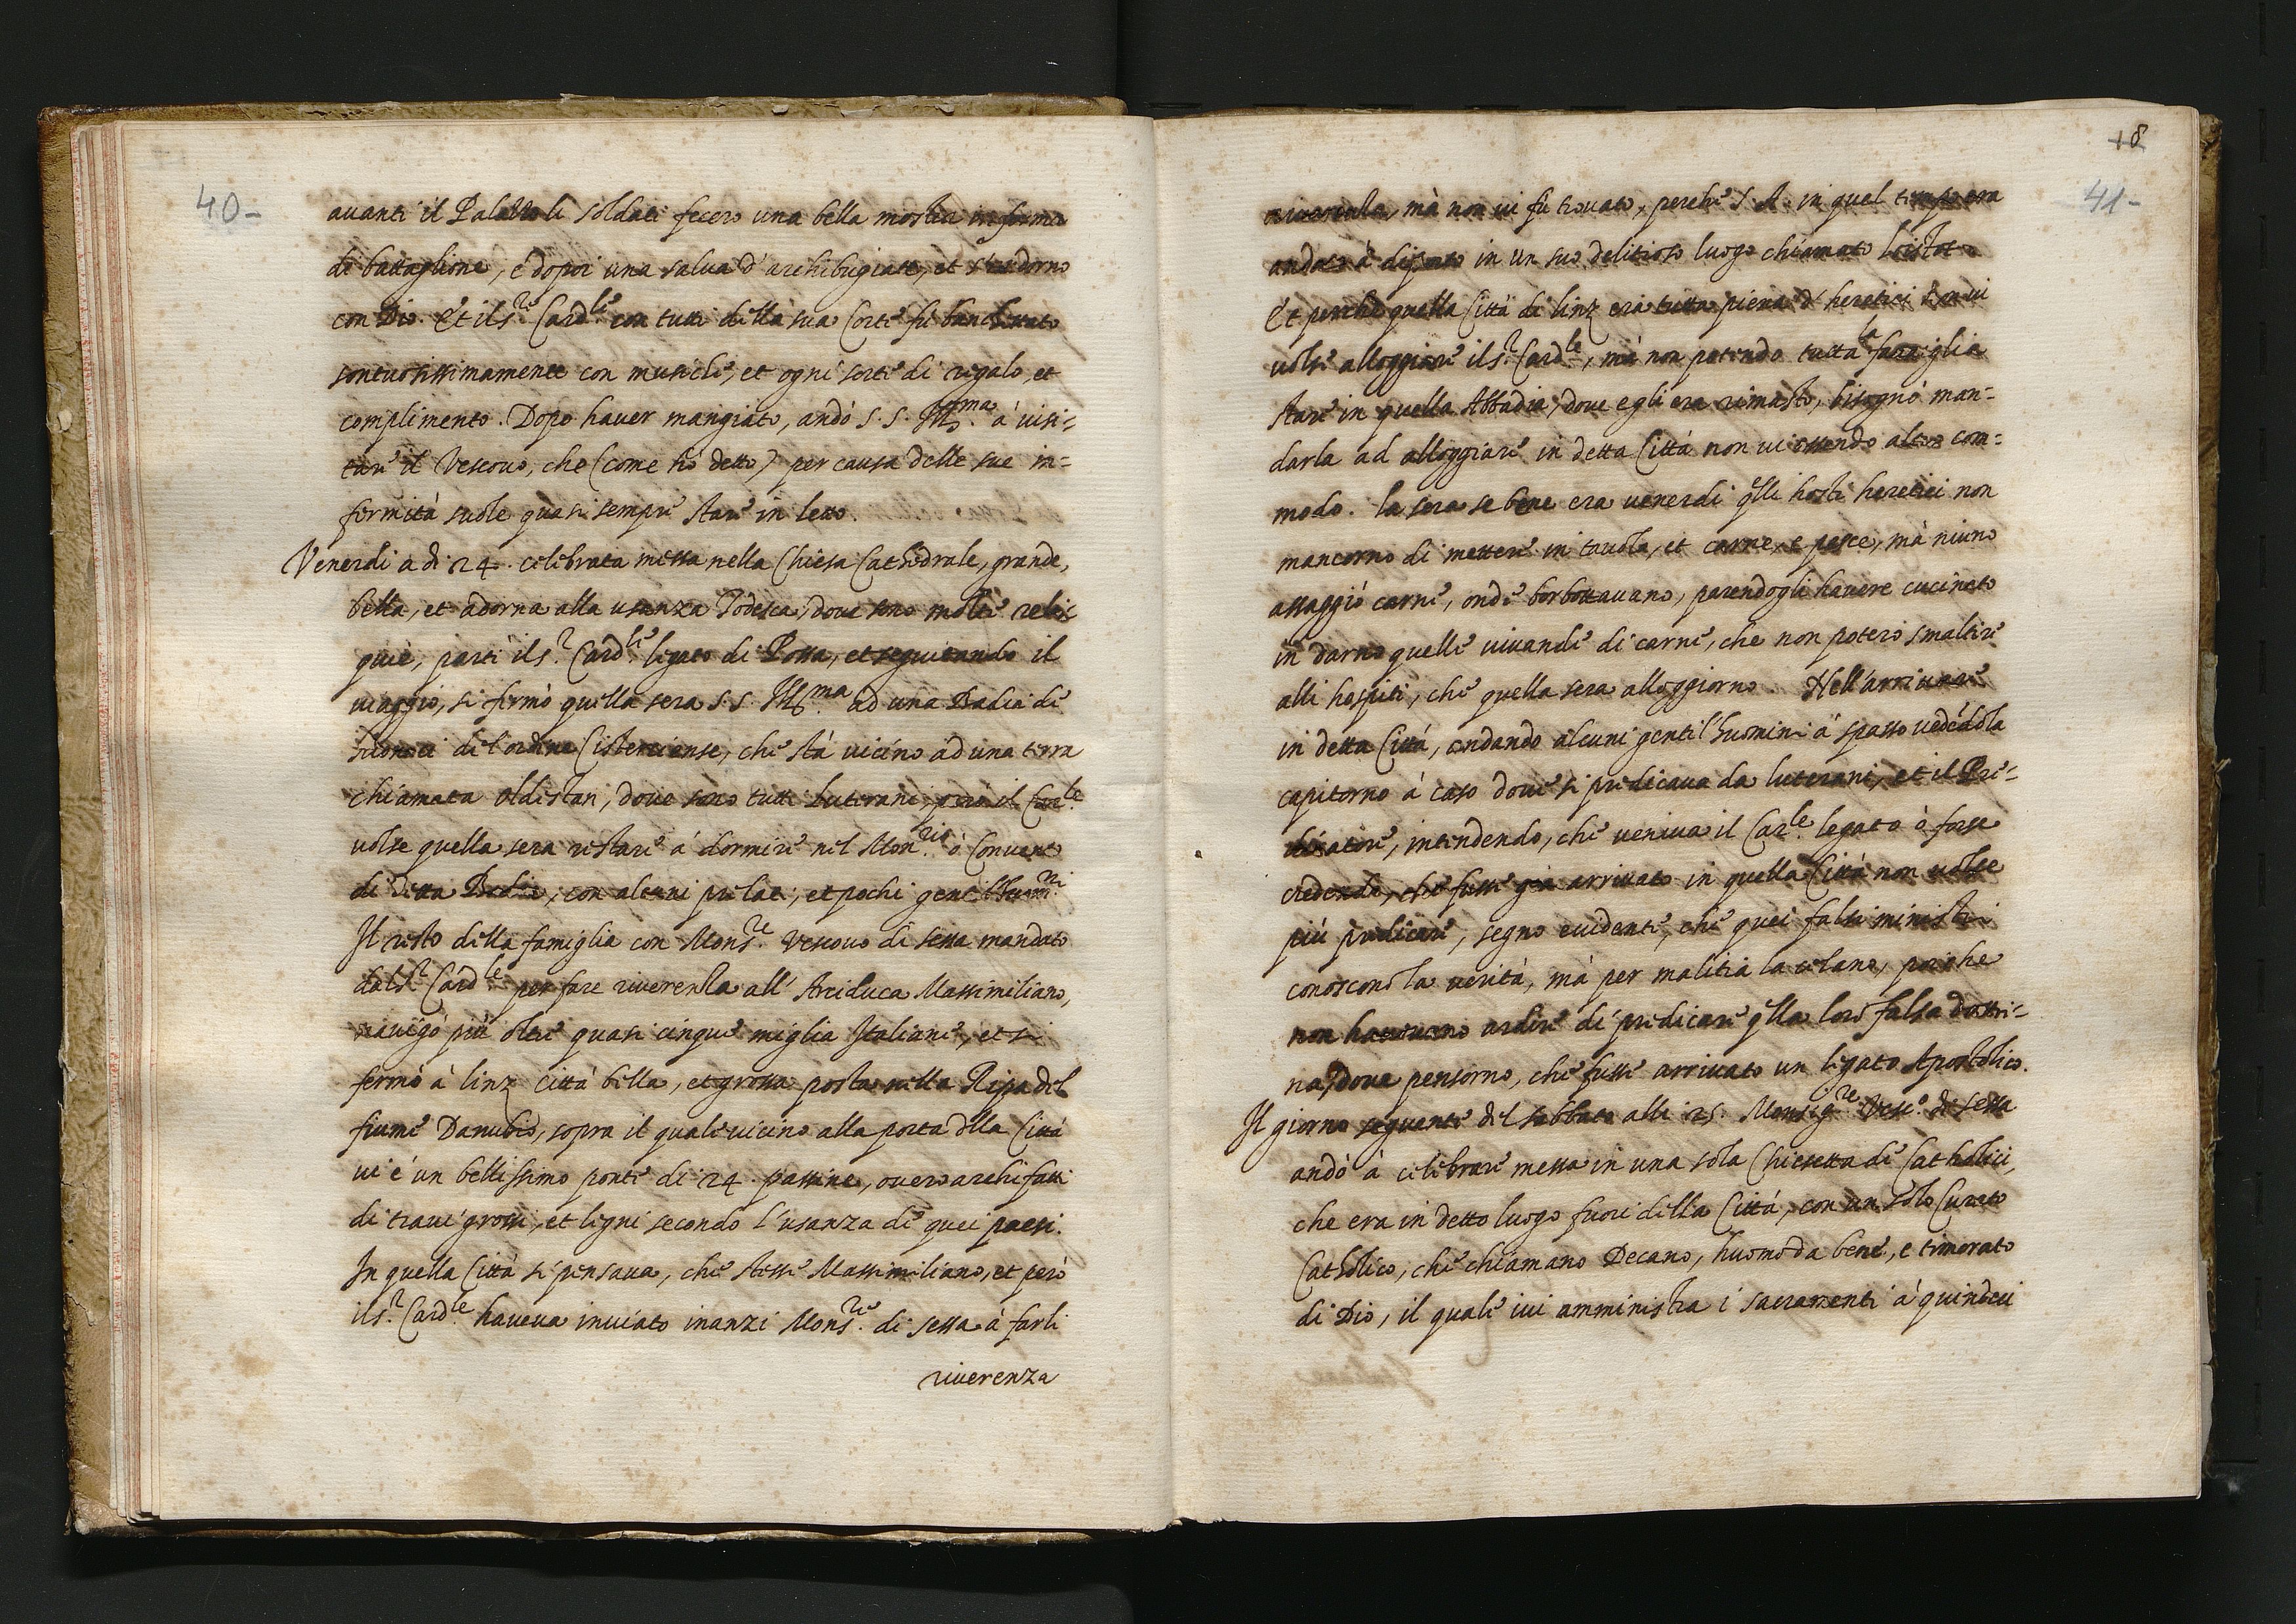 40-
auanti il Palazzo li soldati fecero una bella mostra in forma
di battaglione, e dopoi una salua d'archibugiate, et s'andorno
con Dio. Et il s.r Card.le con tutti della sua Corte fù banchettato
sontuosissimamente con musiche, et ogni sorte di regalo, et
complimento. Dopo hauer mangiato, andò S. S. Ill.ma à uisi-
tare il Vescouo, che (come hò detto) per causa delle sue in-
fermità suole quasi sempre stare in letto.
Venerdi a di 24. celebrata messa nella Chiesa Cathedrale, grande,
bella, et adorna alla usanza Todesca, dove sono molte reli-
quie, partì il s.r Card.le legato di Possa, et seguitando il
uiaggio, si fermò quella sera S. S. Ill.ma ad una Badia di
Monaci de l'ordine Cisterciense, che stà uicino ad una terra
chiamata Oldistan, doue sono tutti luterani, però il Car.le
uolse quella sera restare á dormire nel Mon.rio ò Conuento
di detta Badia, con alcuni prelati, et pochi gentilhuom.ni
Il resto della famiglia con Mons.re Vescouo di sessa mandato
dal s.r Card.le per fare riuerenza all' Arciduca Massimiliano,
nauigó più oltre quasi cinque miglia Italiane, et si
fermò à linz città bella, et grossa posta nella Ripa del
fiume Danubio, sopra il quale uicino alla porta dlla Città
ui è un bellissimo ponte di 24. passine, ouero archi fatti
di traui grossi, et ligni secondo l'usanza di quei paesi.
In quella Città si pensaua, che stesse Massimiliano, et però
il s.r Card.le haueua inuiato inanzi Mons.re di sessa à farli
riuerenza
18
41-
riuerenza, mà non ui fù trouato, perche S. A. in quel tempo era
andato à diporto in un suo delitioso luogo chiamato
Et perche quella Città di linz era tutta piena d'heretici non ui
uolse alloggiare il s.r Card.le, mà non potendo tutta la famiglia
stare in quella Abbadia, doue egli era rimasto, bisognò man-
darla ad alloggiare in detta Città non ui essendo altro com-
modo. la sera se bene era venerdi qlli hosti heretici non
mancorno di mettere in tauola, et carne, e pesce, mà niuno
assaggiò carne, onde borbottauano, parendogli hauere cucinato
in darno quelle uiuande di carne, che non potero smaltire
alli hospiti, che quella sera alloggiorno. Nell'arriuare
in detta Città, andando alcuni gentil'huomini à spasso uedēdola
capitorno à caso doue si predicaua da luterani, et il Pre-
dicatore, intendendo, che ueniua il Car.le legato ò forse
credendo, che fusse già arriuato in quella Città non uolse
più predicare, segno euidente, che quei falsi ministri
conoscono la uerità, mà per malitia la celano, poiche
non haueuano ardire di predicare qlla loro falsa dottri-
na, doue pensorno, che fusse arriuato un legato Apostolico.
Il giorno seguente del sabbato alli 25. Monsig.re Vesc.o di sessa
andò à celebrare messa in una sola Chiesetta di Catholici,
che era in detto luogo fuori della Città, con un solo Curato
Catholico, che chiamano Decano, huomo da bene, e timorato
di Dio, il quale iui amministra i sacramenti á quindici